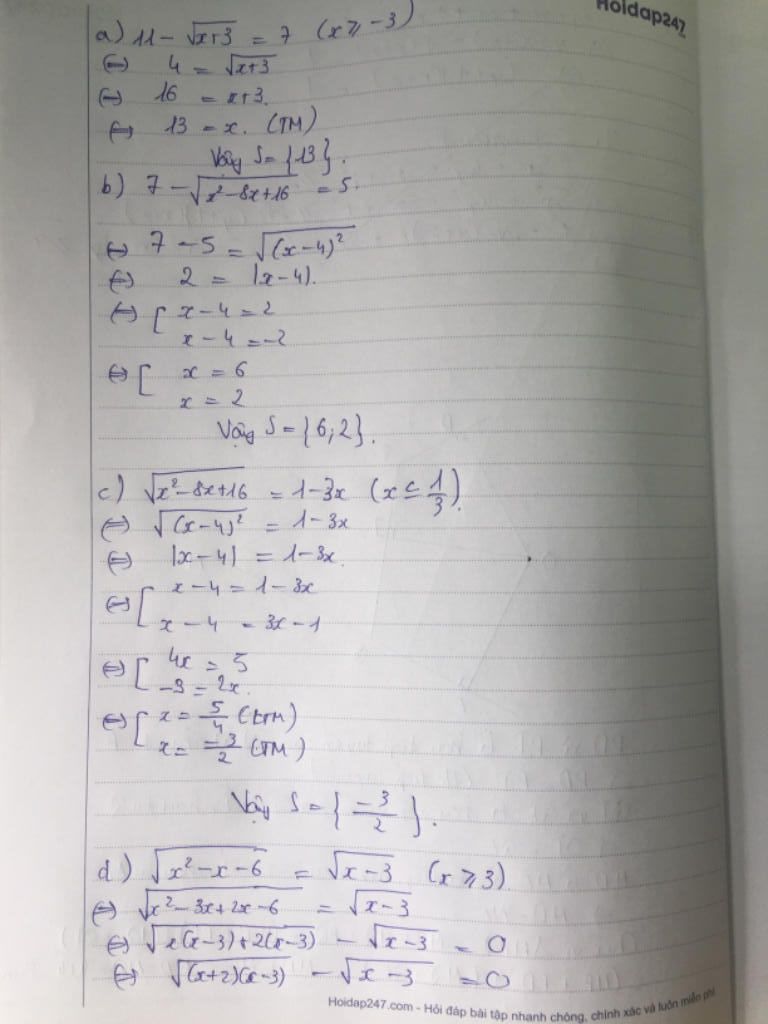 Hoidap247
a) 11 - √(x+3) = 7 (x ≥ -3)
(=) 4 = √(x+3)
(=) 16 = x+3.
(=) 13 = x. (TM)
Vậy S = {13}.
b) 7 - √(x² - 8x + 16) = 5.
(=) 7 - 5 = √((x-4)²)
(=) 2 = |x-4|.
(=) [ x - 4 = 2
x - 4 = -2
(=) [ x = 6
x = 2
Vậy S = {6; 2}.
c) √(x² - 8x + 16) = 1 - 3x (x ≤ 1/3).
(=) √((x-4)²) = 1 - 3x
(=) |x-4| = 1 - 3x.
(=) [ x - 4 = 1 - 3x
x - 4 = 3x - 1
(=) [ 4x = 5
-3 = 2x.
(=) [ x = 5/4 (LTM)
x = -3/2 (TM)
Vậy S = {-3/2}.
d) √(x² - x - 6) = √(x-3) (x ≥ 3)
(=) √(x² - 3x + 2x - 6) = √(x-3)
(=) √(x(x-3) + 2(x-3)) - √(x-3) = 0
(=) √((x+2)(x-3)) - √(x-3) = 0
Hoidap247.com - Hỏi đáp bài tập nhanh chóng, chính xác và luôn miễn phí